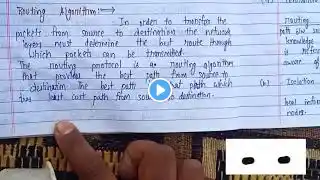 Routing Algorithm:→
In order to transfer the
packets from source to destination the network
layers must determine the best route through
which packets can be transmitted.
The routing protocol is a routing algorithm
that provides the best path from source to
destination the best path that path which
has least cost path from source to destination.
Routing
path b/w
knowledge
aware of
(b) Isolation
nodes.